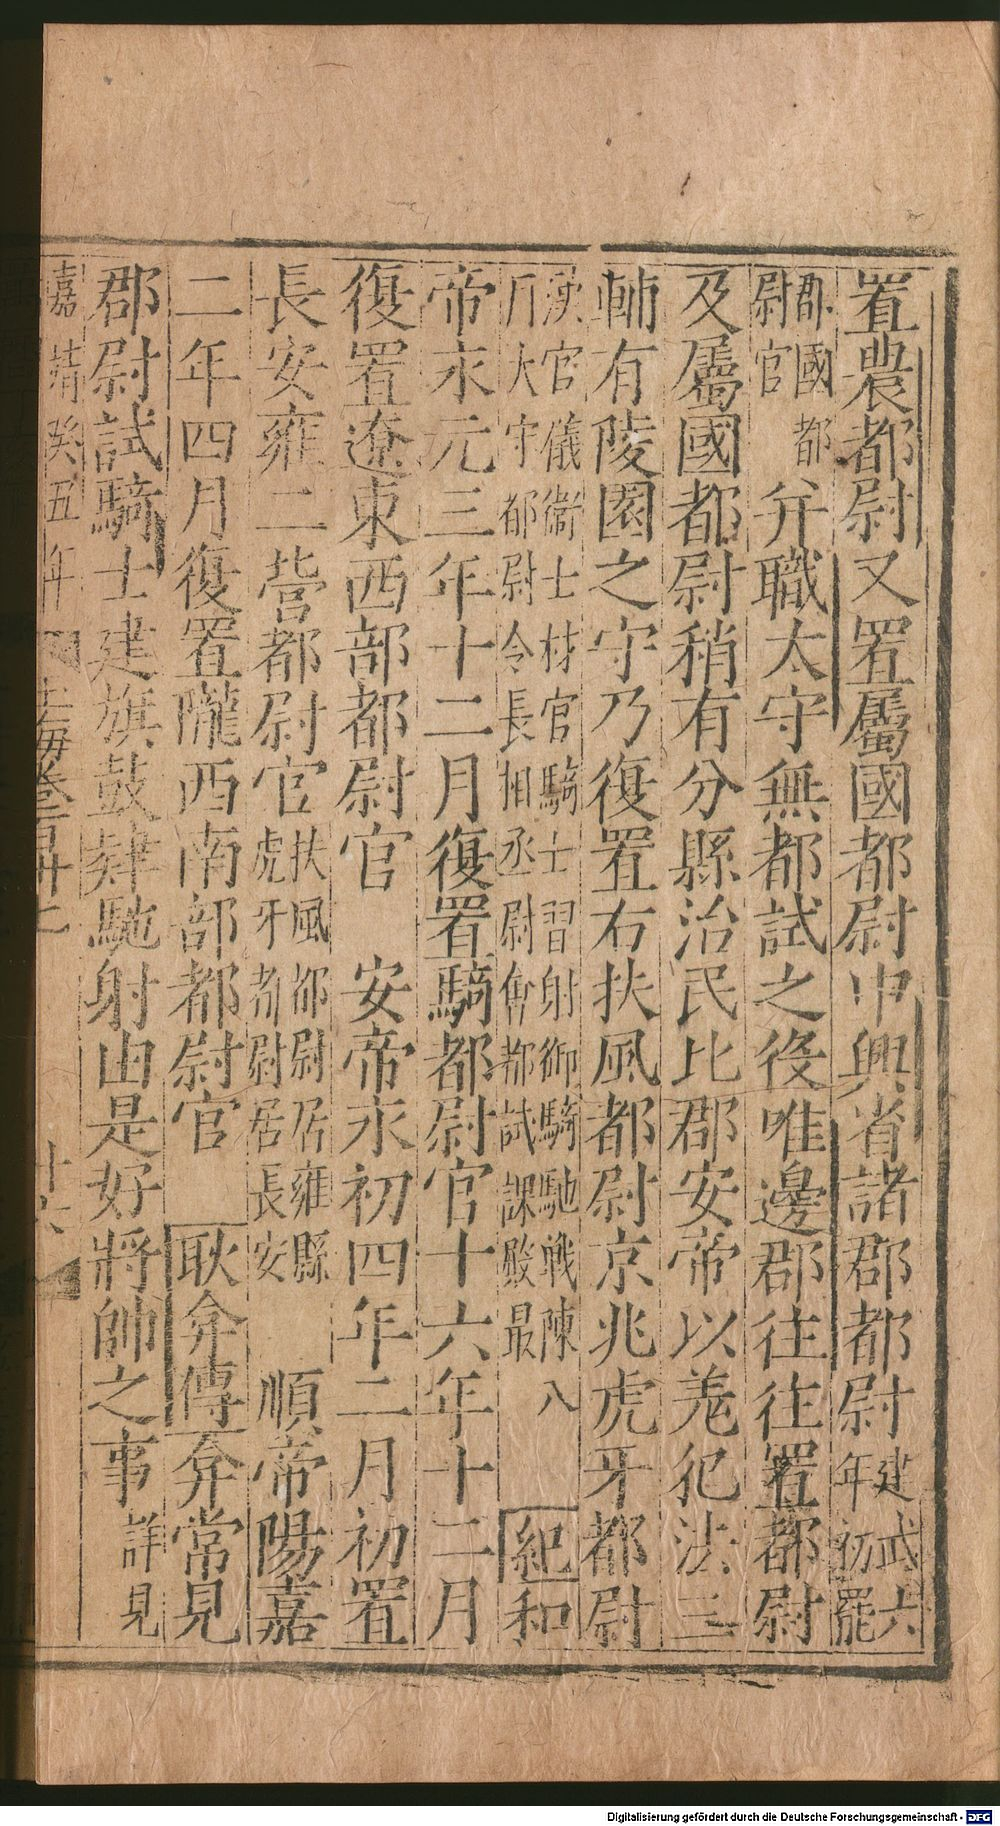 置農都尉又置屬國都尉中興省諸郡都尉建武六年初罷
郡國都尉官并職太守無都試之役唯邊郡往往置都尉
及屬國都尉稍有分縣治民比郡安帝以羗犯法三
輔有陵園之守乃復置右扶風都尉京兆虎牙都尉
漢官儀衛士材官騎士習射御騎馳戰陳八月太守都尉令長相丞尉會都試課殿最 紀和
帝永元三年十二月復置騎都尉官十六年十二月
復置遼東西部都尉官 安帝永初四年二月初置
長安雍二營都尉官扶風都尉居雍縣虎牙都尉居長安 順帝陽嘉
二年四月復置隴西南部都尉官 耿弇傳弇常見
郡尉試騎士建旗鼓肄馳射由是好將帥之事詳見
嘉靖癸丑年 玉海卷百卅七 十六
Digitalisierung gefördert durch die Deutsche Forschungsgemeinschaft - DFG